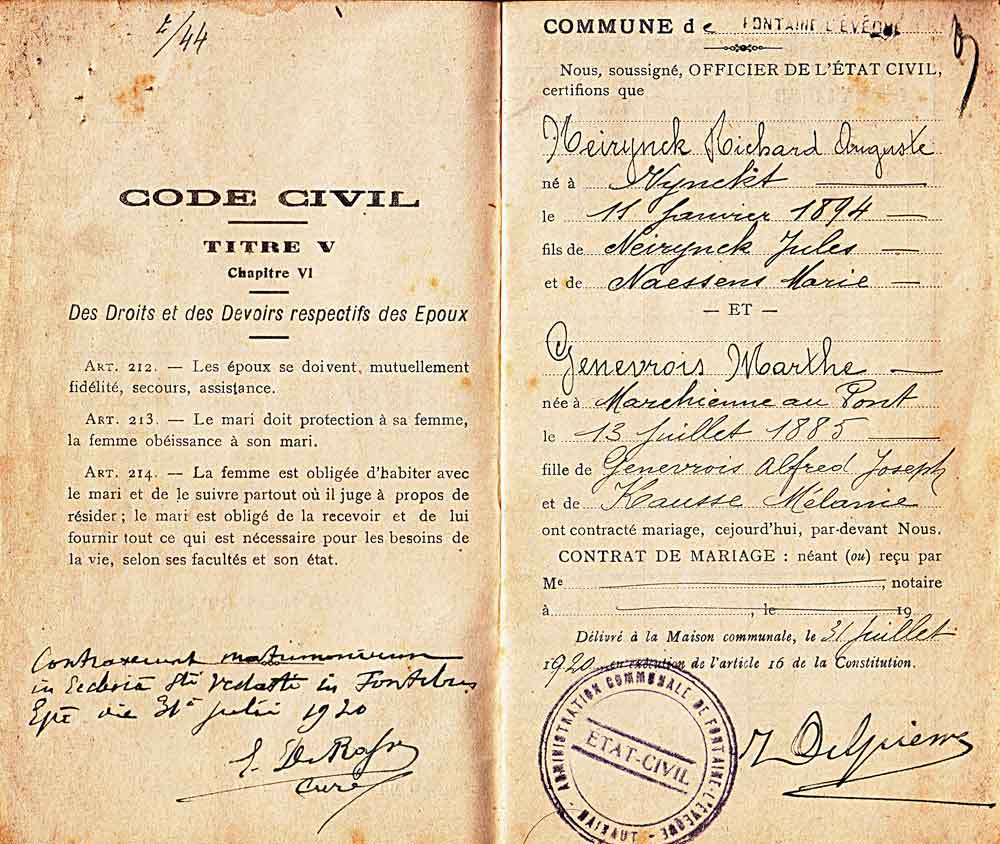 /44
CODE CIVIL
TITRE V
Chapitre VI
Des Droits et des Devoirs respectifs des Epoux
ART. 212. — Les époux se doivent mutuellement
fidélité, secours, assistance.
ART. 213. — Le mari doit protection à sa femme,
la femme obéissance à son mari.
ART. 214. — La femme est obligée d'habiter avec
le mari et de le suivre partout où il juge à propos de
résider ; le mari est obligé de la recevoir et de lui
fournir tout ce qui est nécessaire pour les besoins de
la vie, selon ses facultés et son état.
Contraxerunt matrimonium
in Ecclesia Sti Vedasti in Fontibus
Epi die 31a julii 1920
Curé
COMMUNE de FONTAINE L'ÉVÊQUE
Nous, soussigné, OFFICIER DE L'ÉTAT CIVIL,
certifions que
Neirynck Richard Auguste
né à Wynckt —
le 11 janvier 1894 —
fils de Neirynck Jules —
et de Naessens Marie —
— ET —
Genevrois Marthe —
née à Marchienne au Pont
le 13 juillet 1885 —
fille de Genevrois Alfred Joseph
et de Hausse Mélanie
ont contracté mariage, cejourd'hui, par-devant Nous.
CONTRAT DE MARIAGE : néant (ou) reçu par
Me , notaire
à , le 19
Délivré à la Maison communale, le 31 juillet
1920, en exécution de l'article 16 de la Constitution.
ADMINISTRATION COMMUNALE DE FONTAINE-L'EVÊQUE - HAINAUT -
ETAT-CIVIL